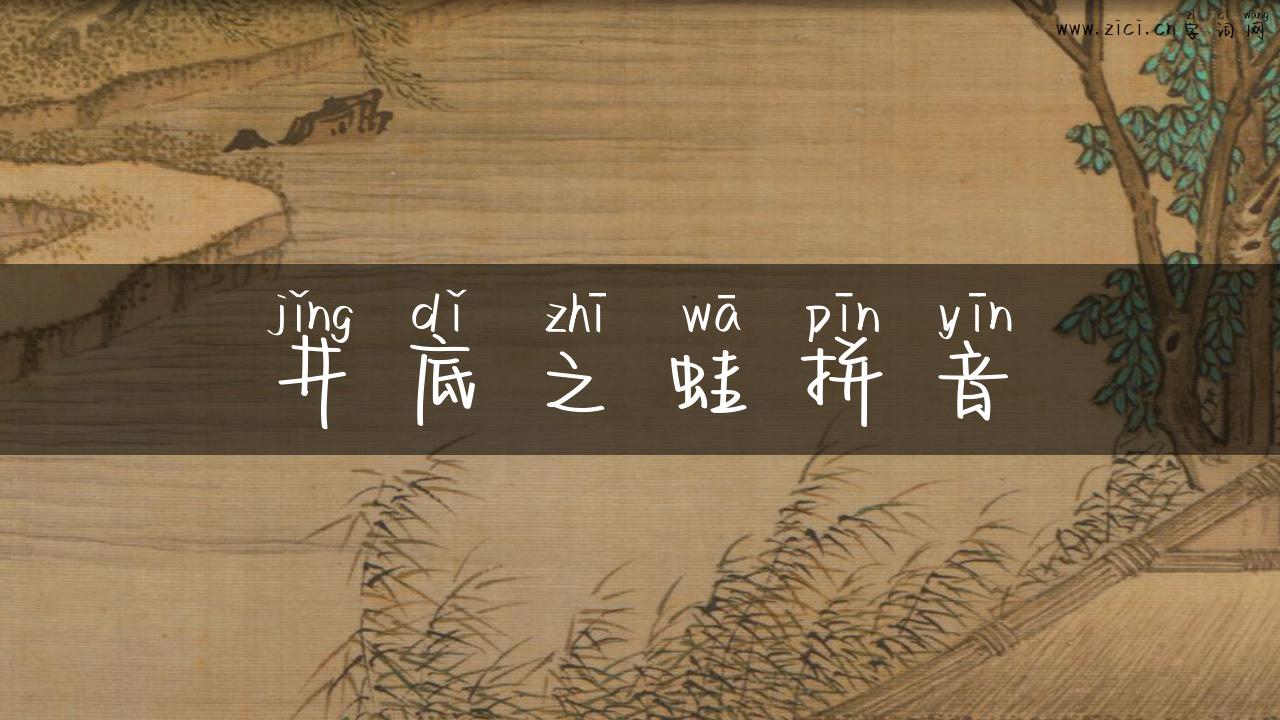 zì cí wǎng
www.zici.cn字词网
jǐng dǐ zhī wā pīn yīn
井底之蛙拼音